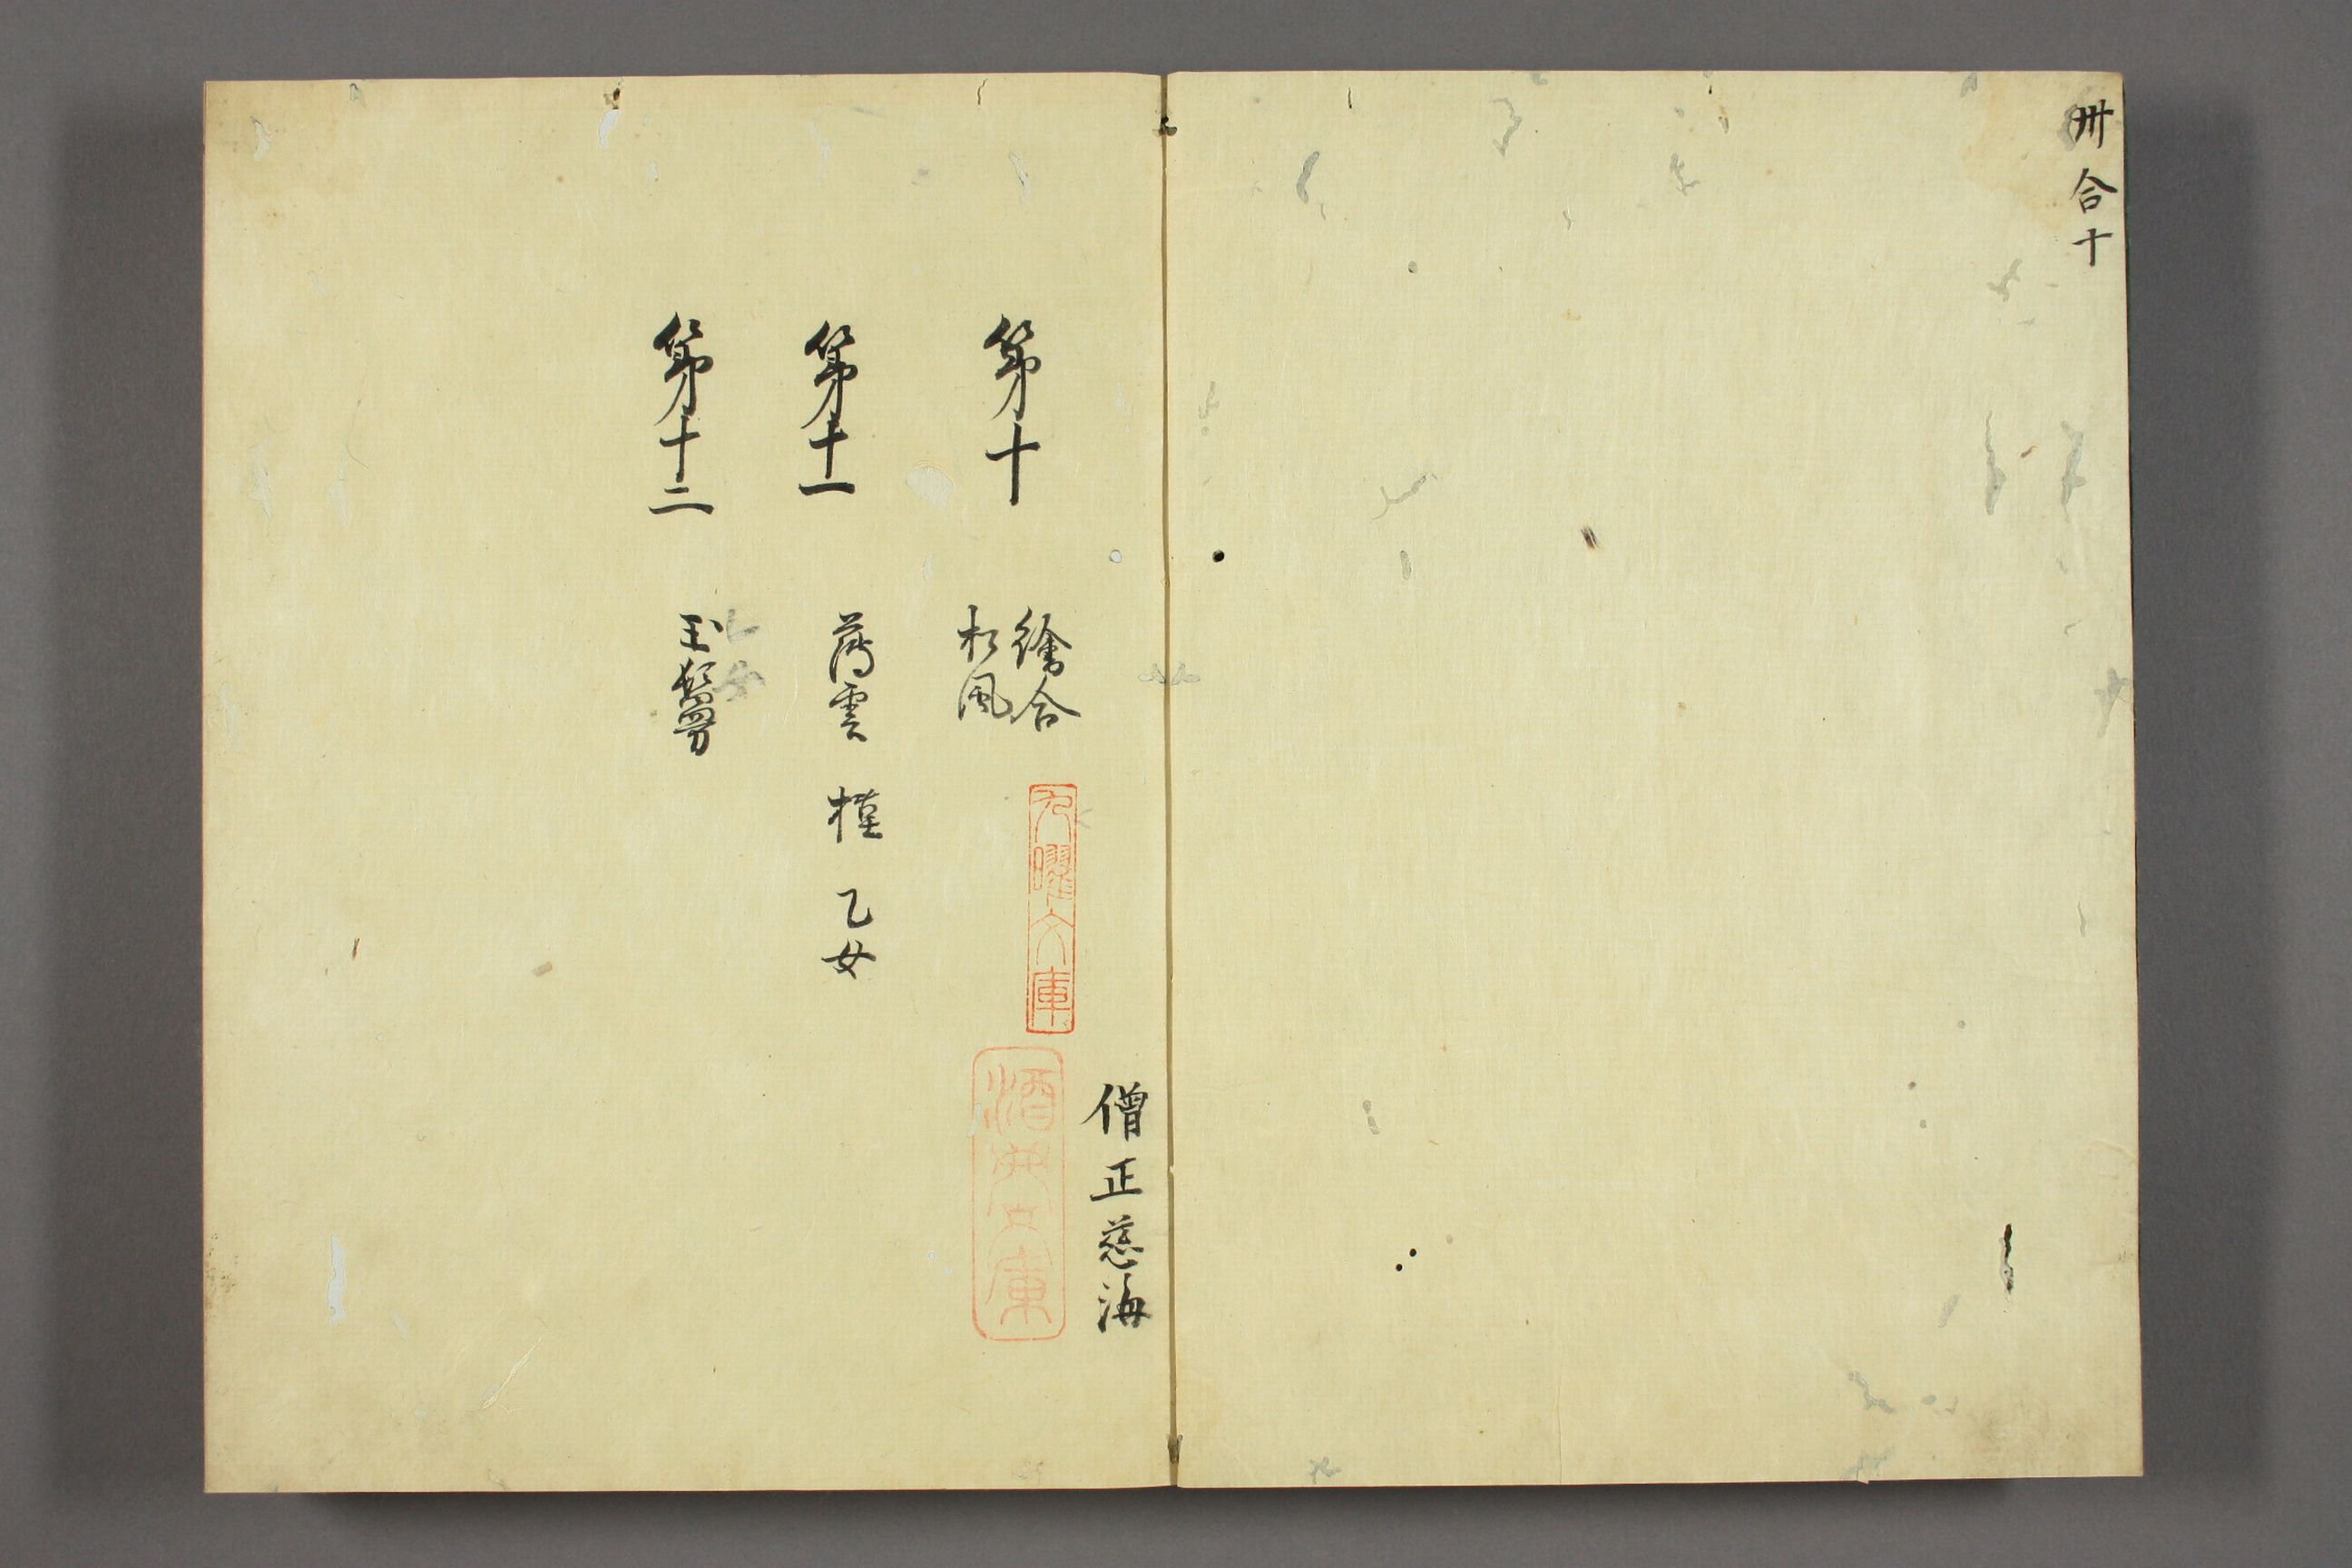 卅合十
僧正慈海
第十
繪合
松風
九曜文庫
第十一
薄雲 槿 乙女
第十二
玉鬘